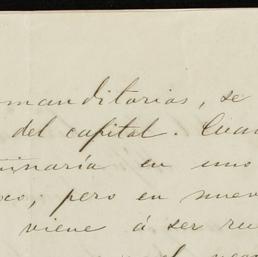 omanditarias, se
del capital. Cuan
inaría en uno
oco, pero en nuev
viene á ser